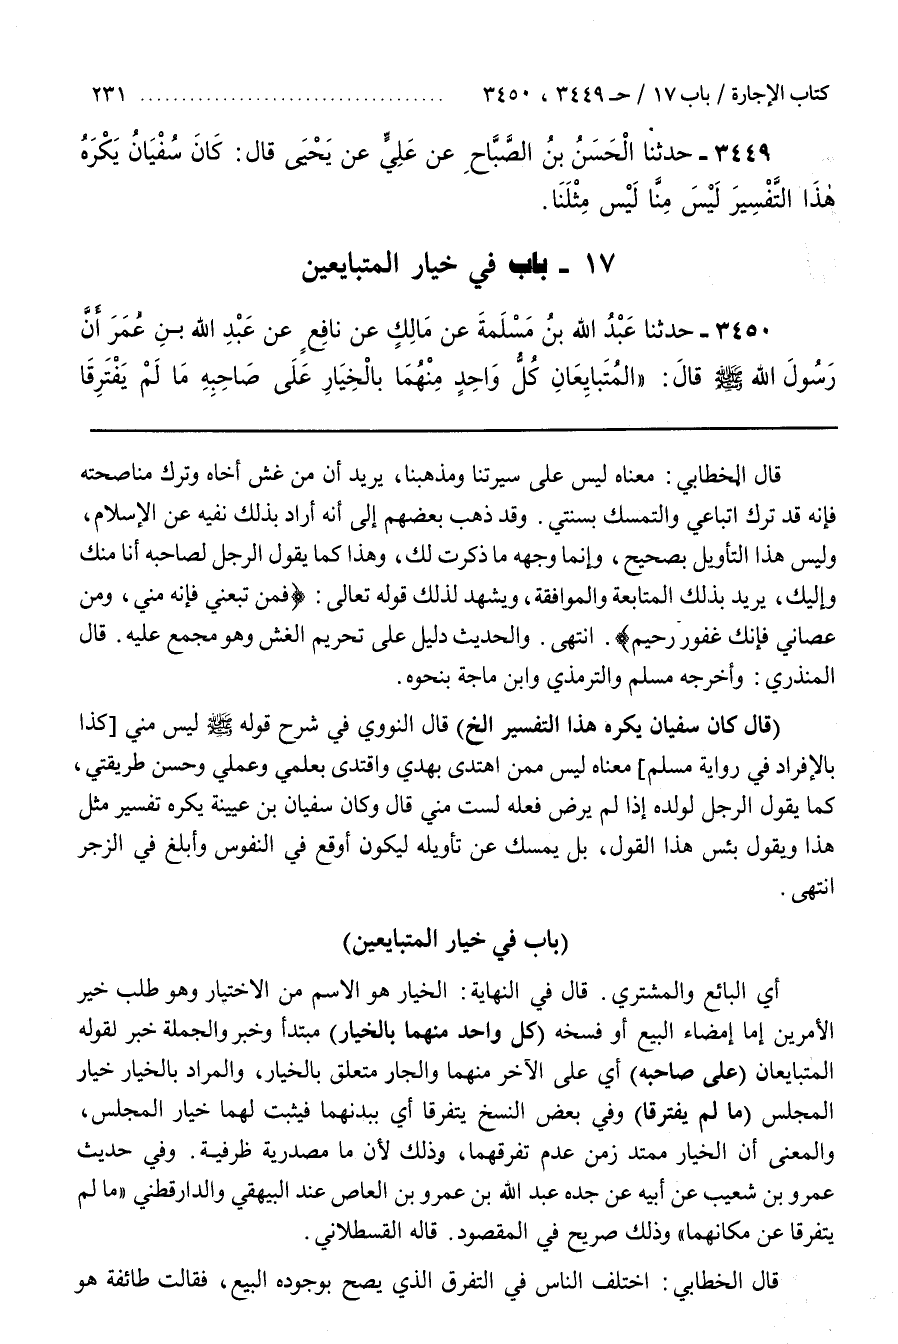 كتاب الإجارة / باب ١٧ / حـ ٣٤٤٩ ، ٣٤٥٠ .................................... ٢٣١
٣٤٤٩ ـ حدثنا الْحَسَنُ بنُ الصَّبَّاحِ عن عَلِيٍّ عن يَحْيَى قال: كَانَ سُفْيَانُ يَكْرَهُ
هٰذَا التَّفْسِيرَ لَيْسَ مِنَّا لَيْس مِثْلَنَا.
١٧ ـ باب في خيار المتبايعين
٣٤٥٠ ـ حدثنا عَبْدُ الله بنُ مَسْلَمةَ عن مَالِكٍ عن نافِعٍ عن عَبْدِ الله بـنِ عُمَرَ أَنَّ
رَسُولَ الله ﷺ قالَ: «المُتَبايِعَانِ كُلُّ وَاحِدٍ مِنْهُمَا بالْخِيَارِ عَلَى صَاحِبِهِ مَا لَمْ يَفْتَرِقَا
قال الخطابي: معناه ليس على سيرتنا ومذهبنا، يريد أن من غش أخاه وترك مناصحته
فإنه قد ترك اتباعي والتمسك بسنتي. وقد ذهب بعضهم إلى أنه أراد بذلك نفيه عن الإسلام،
وليس هذا التأويل بصحيح، وإنما وجهه ما ذكرت لك، وهذا كما يقول الرجل لصاحبه أنا منك
وإليك، يريد بذلك المتابعة والموافقة، ويشهد لذلك قوله تعالى: ﴿فمن تبعني فإنه مني، ومن
عصاني فإنك غفور رحيم﴾. انتهى. والحديث دليل على تحريم الغش وهو مجمع عليه. قال
المنذري: وأخرجه مسلم والترمذي وابن ماجة بنحوه.
(قال كان سفيان يكره هذا التفسير الخ) قال النووي في شرح قوله ﷺ ليس مني [كذا
بالإفراد في رواية مسلم] معناه ليس ممن اهتدى بهدي واقتدى بعلمي وعملي وحسن طريقتي،
كما يقول الرجل لولده إذا لم يرض فعله لست مني قال وكان سفيان بن عيينة يكره تفسير مثل
هذا ويقول بئس هذا القول، بل يمسك عن تأويله ليكون أوقع في النفوس وأبلغ في الزجر
انتهى.
(باب في خيار المتبايعين)
أي البائع والمشتري. قال في النهاية: الخيار هو الاسم من الاختيار وهو طلب خير
الأمرين إما إمضاء البيع أو فسخه (كل واحد منهما بالخيار) مبتدأ وخبر والجملة خبر لقوله
المتبايعان (على صاحبه) أي على الآخر منهما والجار متعلق بالخيار، والمراد بالخيار خيار
المجلس (ما لم يفترقا) وفي بعض النسخ يتفرقا أي ببدنهما فيثبت لهما خيار المجلس،
والمعنى أن الخيار ممتد زمن عدم تفرقهما، وذلك لأن ما مصدرية ظرفية. وفي حديث
عمرو بن شعيب عن أبيه عن جده عبد الله بن عمرو بن العاص عند البيهقي والدارقطني «ما لم
يتفرقا عن مكانهما» وذلك صريح في المقصود. قاله القسطلاني.
قال الخطابي: اختلف الناس في التفرق الذي يصح بوجوده البيع، فقالت طائفة هو